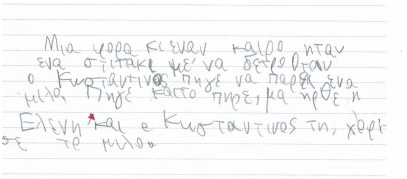 Μια φορα κι εναν καιρο ηταν
ενα σπιτακι με' να δετρο θταν
ο Κωσταντινος πηγε να παρει ενα
μιλο, Πηγε και το πηρε, μα ηρθε η
Ελενη και ο Κωσταντινος τη, χαρι
σε το μιλο